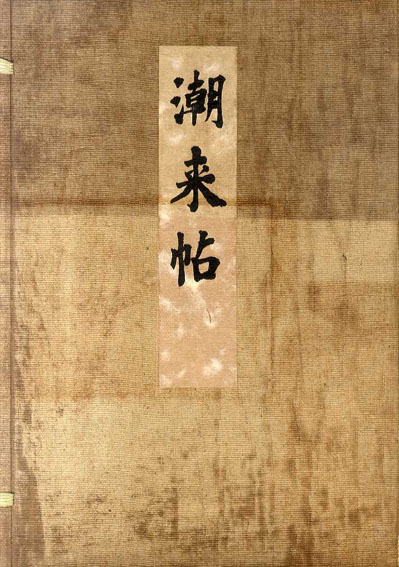 潮来帖